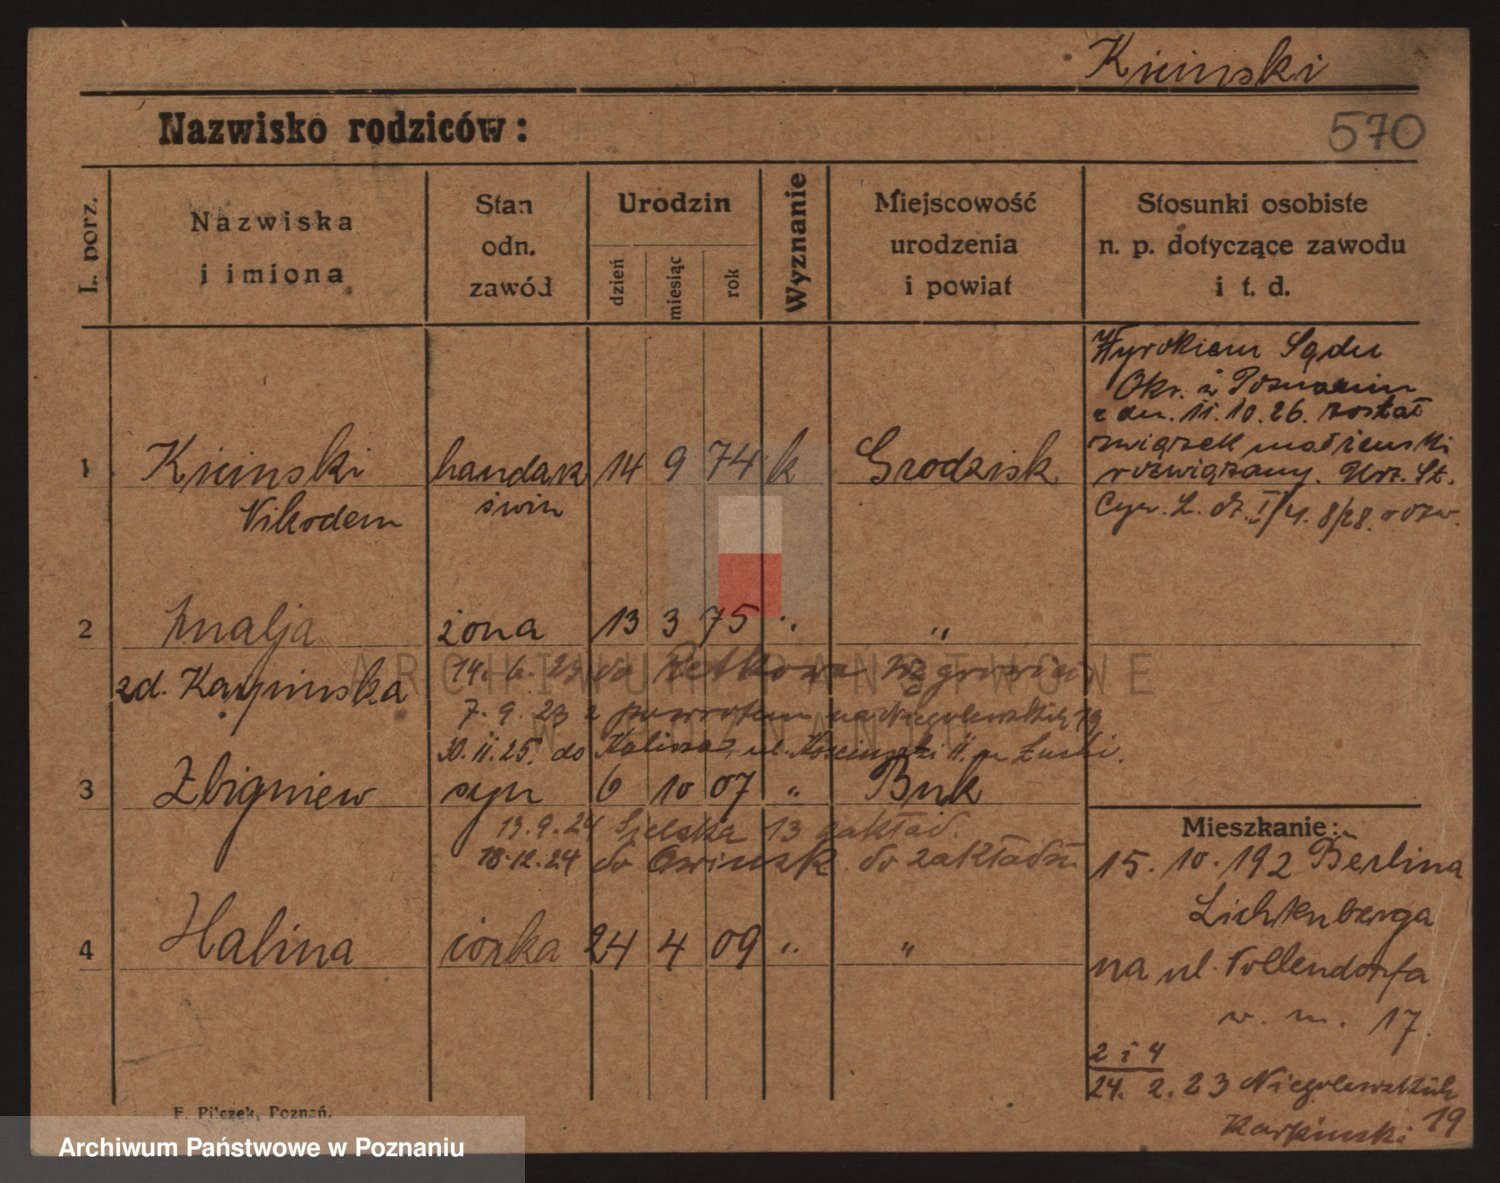 Kicinski
Nazwisko rodziców:
570
L. porz.
Nazwiska
i imiona
Stan
odn.
zawód
Urodzin
dzień
miesiąc
rok
Wyznanie
Miejscowość
urodzenia
i powiat
Stosunki osobiste
n. p. dotyczące zawodu
i t. d.
Wyrokiem Sądu
Okr. w Poznaniu
z dn. 11.10.26. został
związek małżeński
rozwiązany. Urz. St.
Cyw. L. dz. I/4. 8/28. rozw.
1 Kicinski handarz 14 9 74 k Grodzisk
Nikodem świn
2 Amalja żona 13 3 75 " "
zd. Karpinska 14. 6. 23 do Retkowa Wągrowiec
7. 9. 23 z powrotem na Niegolewskich 19
30. 11. 25. do Kalisza, ul. 11. pr
3 Zbigniew syn 6 10 07 " Buk
13. 9. 24 Sielska 13 zakład.
18. 12. 24 do Owinsk do zakładu
4 Halina córka 24 4 09 " "
Mieszkanie:
15. 10. 192 Berlina
Lichtenberga
na ul. Vollendorfa
w. m. 17.
2 i 4
24. 2. 23 Niegolewskich
Karpinski 19
F. Pilczek, Poznań.
ARCHIWUM PAŃSTWOWE
W POZNANIU
Archiwum Państwowe w Poznaniu